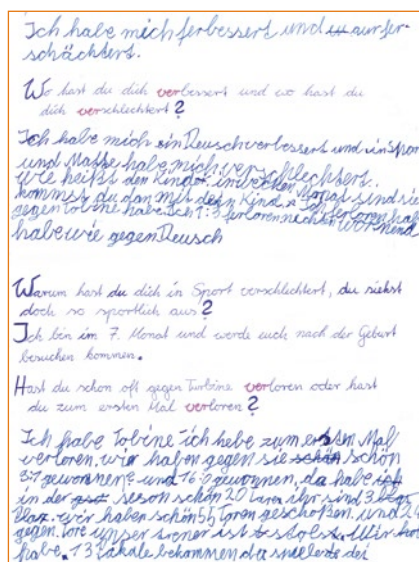 Ich habe mich ferbessert und auf fer-
schächtert.
Wo hast du dich verbessert und wo hast du
dich verschlechtert?
Ich habe mich in Deusch verbessert und in Spor
und Mathe habe mich verschlechtert.
wie heißt den Kinder in welchen Monat sind sie
kommst du dan mit dein Kind
gegen tobine habe ich 1:3 ferloren
habe wie gegen Deusch
Warum hast du dich in Sport verschlechtert, du siehst
doch so sportlich aus?
Ich bin im 7. Monat und werde euch nach der Geburt
besuchen kommen.
Hast du schon oft gegen Turbine verloren oder hast
du zum ersten Mal verloren?
Ich habe Tobine ich hebe zum ersten Mal
verloren. wir haben gegen sie schön
3:1 gewonnen und 16:0 gewonnen, da habe
in der seson schön 20 ihr sind 3.
Plaz. wir haben schön 55 Toren geschoßen. und 24
gegen. Tore unser trener ist stols. Wir
habe. 13 Pakale bekommen da